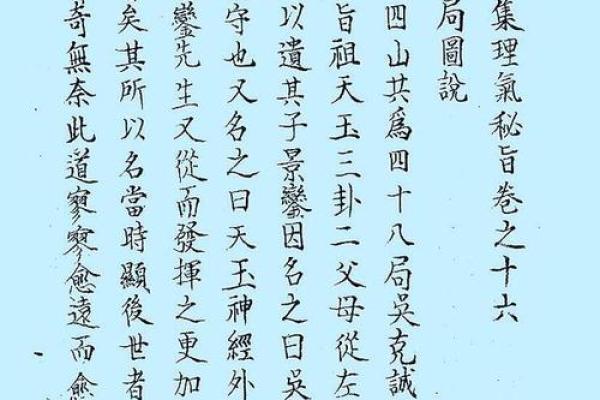 集理氣秘旨卷之十六
局圖說
四山共爲四十八局吳克誠
旨祖天玉三卦二父母從左
以遺其子景鸞因名之曰吳
守也又名之曰天玉神經外
鸞先生又從而發揮之更加
矣其所以名當時顯後世者
奇無奈此道寥寥愈遠而愈